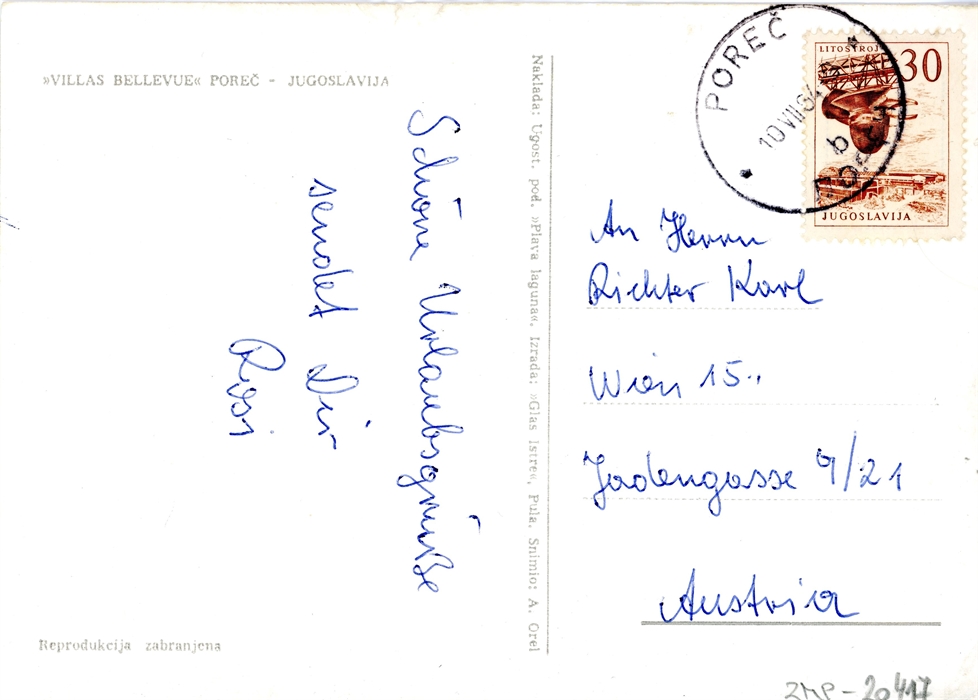 »VILLAS BELLEVUE« POREČ - JUGOSLAVIJA
Schöne Urlaubsgrüße
sendet Dir
Rosi
Reprodukcija zabranjena
Naklada: Ugost. pod. »Plava laguna«. Izrada: »Glas Istre«, Pula. Snimio: A. Orel
POREČ
10 VII 64
b
LITOSTROJ
30
JUGOSLAVIJA
An Herrn
Richter Karl
Wien 15.
Jadengasse 9/21
Austria
ZMP-20417